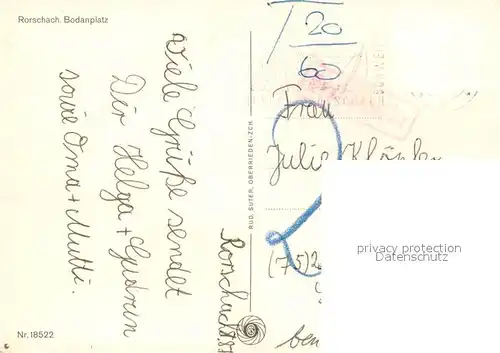 Rorschach. Bodanplatz
Viele Grüße sendet
Dir Helga + Gudrun
sowie Oma + Mutti.
Rorschach
Nr. 18522
RUD. SUTER, OBERRIEDEN-ZCH.
T 20
60
Frau
Julie
(75)
privacy protection
Datenschutz